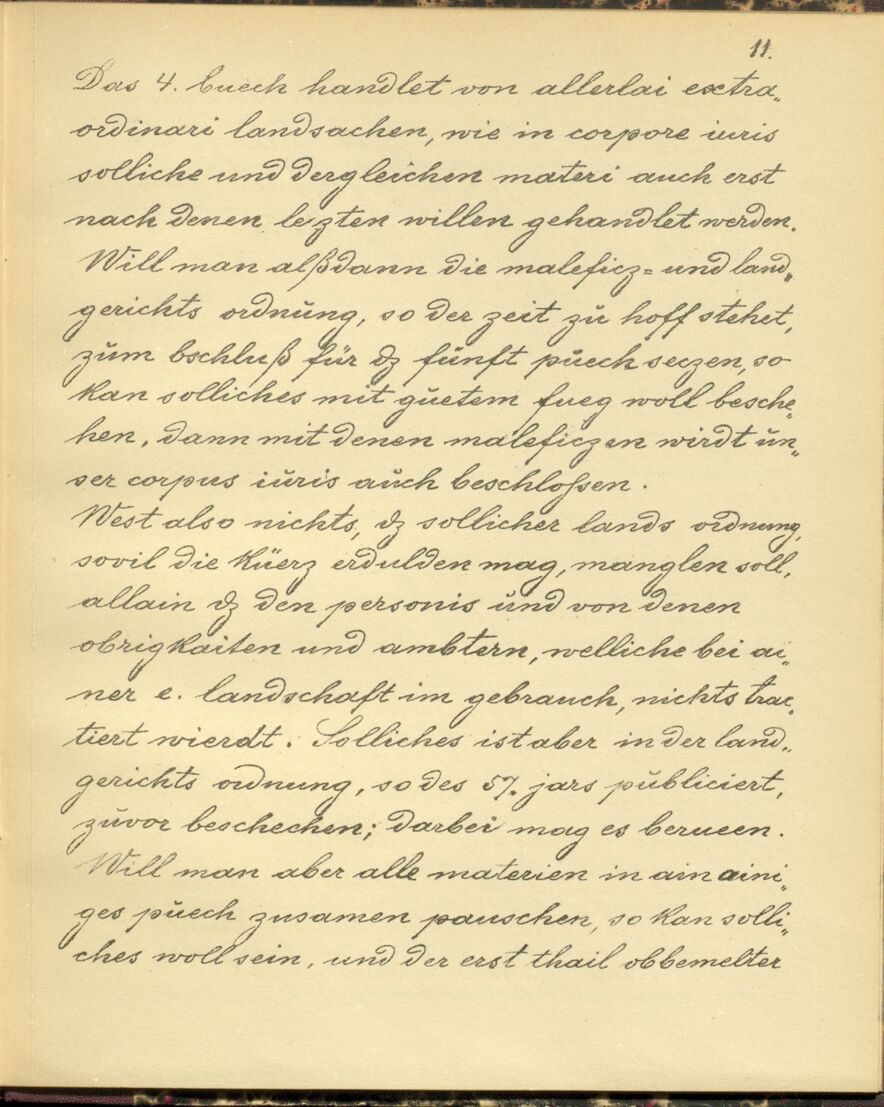 11.
Das 4. buech handlet von allerlai extra„
ordinari landsachen, wie in corpore iuris
solliche und dergleichen materi auch erst
nach denen lezten willen gehandlet werden.
Will man alßdann die maleficz= und land„
gerichts ordnŭng, so der zeit zŭ hoff stehet,
zŭm bschluß für dz fŭnft pŭech seczen, so
kan solliches mit gŭetem fueg woll besche„
hen, dann mit denen maleficzen wirdt ŭn„
ser corpus iŭris aŭch beschloßen.
West also nichts, dz sollicher lands ordnung,
sovil die Küerz erdulden mag, manglen soll,
allain dz den personis ŭnd von denen
obrigkaiten und ambtern, welliche bei ai„
ner e. landschaft im gebrauch, nichts trac„
tiert wierdt. Solliches ist aber in der land„
gerichts ordnung, so des 57. jars pŭbliciert,
zŭvor beschechen; darbei mag es berueen.
Will man aber alle materien in ain aini„
ges pŭech zusamen pauschen, so kan solli„
ches woll sein, und der erst thail obbemelter